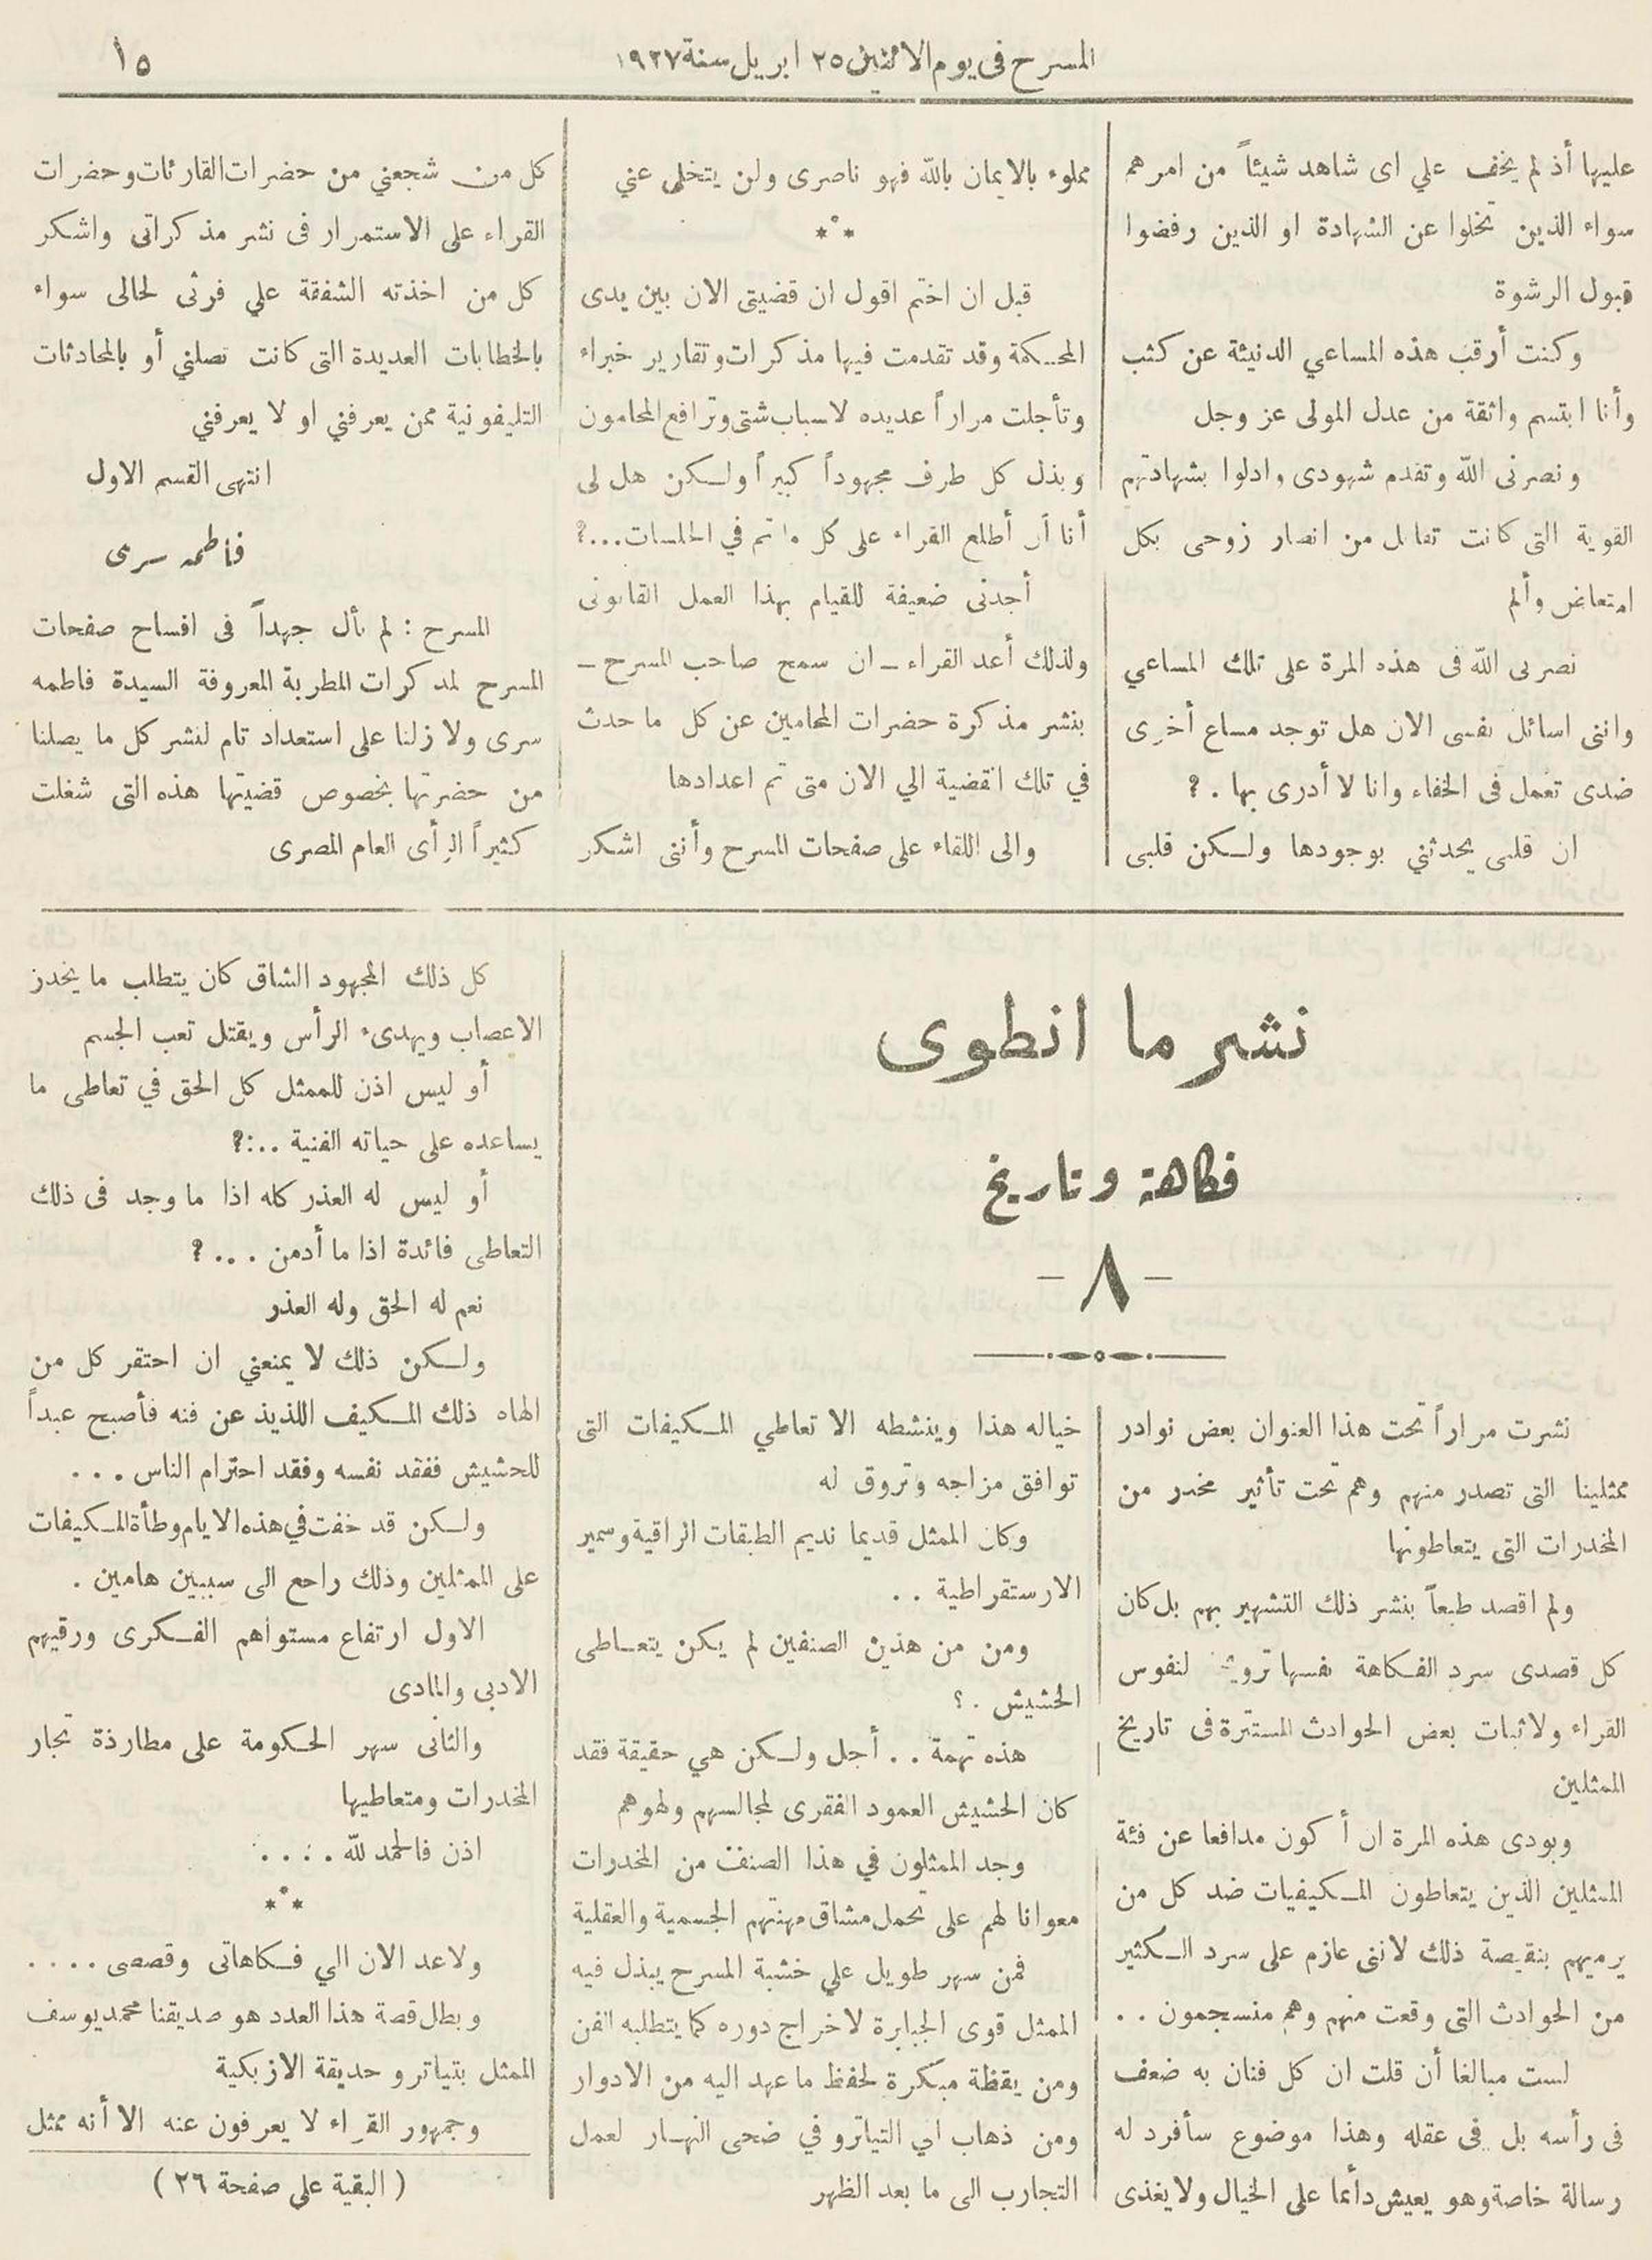 المسرح في يوم الاثنين ٢٥ ابريل سنة ١٩٢٧
١٥
عليها أذ لم يخف علي اى شاهد شيئاً من امرهم
سواء الذين تخلوا عن الشهادة او الذين رفضوا
قبول الرشوة
وكنت أرقب هذه المساعي الدنيئة عن كثب
وأنا ابتسم واثقة من عدل المولى عز وجل
ونصرنى الله وتقدم شهودى وادلوا بشهادتهم
القوية التى كانت تقابل من انصار زوحى بكل
امتعاض وألم
نصرنى الله فى هذه المرة على تلك المساعي
واننى اسائل نفسى الان هل توجد مساع أخرى
ضدى تعمل فى الخفاء وانا لا أدرى بها . ؟
ان قلبى يحدثني بوجودها ولكن قلبى
مملوء بالايمان بالله فهو ناصرى ولن يتخلى عني
***
قبل ان اختم اقول ان قضيتى الان بين يدى
المحكمة وقد تقدمت فيها مذكرات وتقارير خبراء
وتأجلت مراراً عديده لاسباب شتى وترافع المحامون
وبذل كل طرف مجهوداً كبيراً ولكن هل لى
أنا أن أطلع القراء على كل ما تم في الجلسات...؟
أجدنى ضعيفة للقيام بهذا العمل القانونى
ولذلك أعد القراء ــ ان سمح صاحب المسرح ــ
بنشر مذكرة حضرات المحامين عن كل ما حدث
في تلك القضية الي الان متى تم اعدادها
والى اللقاء على صفحات المسرح وأننى اشكر
كل من شجعني من حضرات القارئات وحضرات
القراء على الاستمرار فى نشر مذكراتى واشكر
كل من اخذته الشفقة علي فرثى لحالى سواء
بالخطابات العديدة التى كانت تصلني أو بالمحادثات
التليفونية ممن يعرفني او لا يعرفني
انتهى القسم الاول
فاطمه سرى
المسرح : لم نأل جهداً فى افساح صفحات
المسرح لمذكرات المطربة المعروفة السيدة فاطمه
سرى ولا زلنا على استعداد تام لنشر كل ما يصلنا
من حضرتها بخصوص قضيتها هذه التى شغلت
كثيراً الرأى العام المصرى
نشر ما انطوى
فكاهة وتاريخ
- ٨ -
نشرت مراراً تحت هذا العنوان بعض نوادر
ممثلينا التى تصدر منهم وهم تحت تأثير مخدر من
المخدرات التى يتعاطونها
ولم اقصد طبعاً بنشر ذلك التشهير بهم بل كان
كل قصدى سرد الفكاهة نفسها لنفوس
القراء ولاثبات بعض الحوادث المستترة فى تاريخ
الممثلين
وبودى هذه المرة ان أكون مدافعا عن فئة
الممثلين الذين يتعاطون المكيفيات ضد كل من
يرميهم بنقيصة ذلك لاننى عازم على سرد الكثير
من الحوادث التى وقعت منهم وهم منسجمون . .
لست مبالغا أن قلت ان كل فنان به ضعف
فى رأسه بل فى عقله وهذا موضوع سأفرد له
رسالة خاصة وهو يعيش دأمًا على الخيال ولا يغذى
خياله هذا وينشطه الا تعاطي المكيفات التى
توافق مزاجه وتروق له
وكان الممثل قديما نديم الطبقات الراقية وسمير
الارستقراطية . .
ومن من هذين الصنفين لم يكن يتعاطى
الحشيش . ؟
هذه تهمة . . أجل ولكن هي حقيقة فقد
كان الحشيش العمود الفقرى لمجالسهم ولهوهم
وجد الممثلون في هذا الصنف من المخدرات
معوانا لهم على تحمل مشاق مهنتهم الجسمية والعقلية
فمن سهر طويل علي خشبة المسرح يبذل فيه
الممثل قوى الجبابرة لاخراج دوره كما يتطلبه الفن
ومن يقظة مبكرة لحفظ ما عهد اليه من الادوار
ومن ذهاب الي التياترو في ضحى النهار لعمل
التجارب الى ما بعد الظهر
كل ذلك المجهود الشاق كان يتطلب ما يخدر
الاعصاب ويهدىء الرأس ويقتل تعب الجسم
أو ليس اذن للممثل كل الحق في تعاطى ما
يساعده على حياته الفنية ...؟
أو ليس له العذر كله اذا ما وجد فى ذلك
التعاطى فائدة اذا ما أدمن . . . ؟
نعم له الحق وله العذر
ولكن ذلك لا يمنعني ان احتقر كل من
الهاه ذلك المكيف اللذيذ عن فنه فأصبح عبداً
للحشيش ففقد نفسه وفقد احترام الناس . . .
ولكن قد خفت في هذه الايام وطأة المكيفات
على الممثلين وذلك راجع الى سببين هامين .
الاول ارتفاع مستواهم الفكرى ورقيهم
الادبى والمادى
والثانى سهر الحكومة على مطاردة تجار
المخدرات ومتعاطيها
اذن فالحمد لله . . . .
***
ولاعد الان الي فكاهاتى وقصصى . . . .
وبطل قصة هذا العدد هو صديقنا محمد يوسف
الممثل بتياترو حديقة الازبكية
وجمهور القراء لا يعرفون عنه الا أنه ممثل
( البقية علي صفحة ٢٦ )